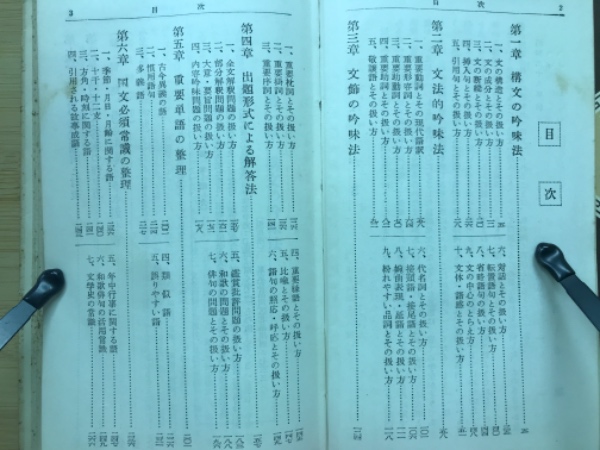 2
目次
目次
第一章 構文の吟味法
一、文の構造とその扱い方
二、文の成分とその扱い方
三、文の断続とその扱い方
四、挿入句とその扱い方
五、引用句とその扱い方
六、対話とその扱い方
七、転置語句とその扱い方
八、省略語句の扱い方
九、文の中心のとらえ方
十、文体・語感とその扱い方
第二章 文法的吟味法
一、重要動詞とその現代語訳
二、重要形容詞とその扱い方
三、重要助動詞とその扱い方
四、重要助詞とその扱い方
五、敬譲語とその扱い方
六、代名詞とその扱い方
七、接頭語・接尾語とその扱い方
八、婉曲表現・延語とその扱い方
九、紛れやすい品詞とその扱い方
第三章 文飾の吟味法
3
目次
一、重要枕詞とその扱い方
二、重要掛詞とその扱い方
三、重要序詞とその扱い方
四、重要縁語とその扱い方
五、比喩とその扱い方
六、語句の照応・呼応とその扱い方
第四章 出題形式による解答法
一、全文解釈問題の扱い方
二、部分解釈問題の扱い方
三、大意・要旨問題の扱い方
四、内容吟味問題の扱い方
五、鑑賞批評問題の扱い方
六、和歌の問題とその扱い方
七、俳句の問題とその扱い方
第五章 重要単語の整理
一、古今異義の語
二、慣用語句
三、多義語
四、類似語
五、誤りやすい語
第六章 国文必須常識の整理
一、季節・月日・月齢に関する語
二、十干・十二支
三、方角・時刻に関する語
四、引用される故事成語
五、年中行事に関する語
六、和歌俳句の活用常識
七、文学史の常識